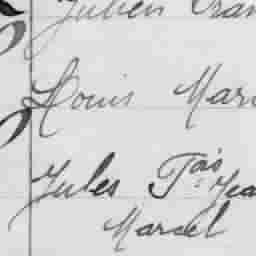 Julien Fran
Louis Mari
Jules Fois Jea
Marcel